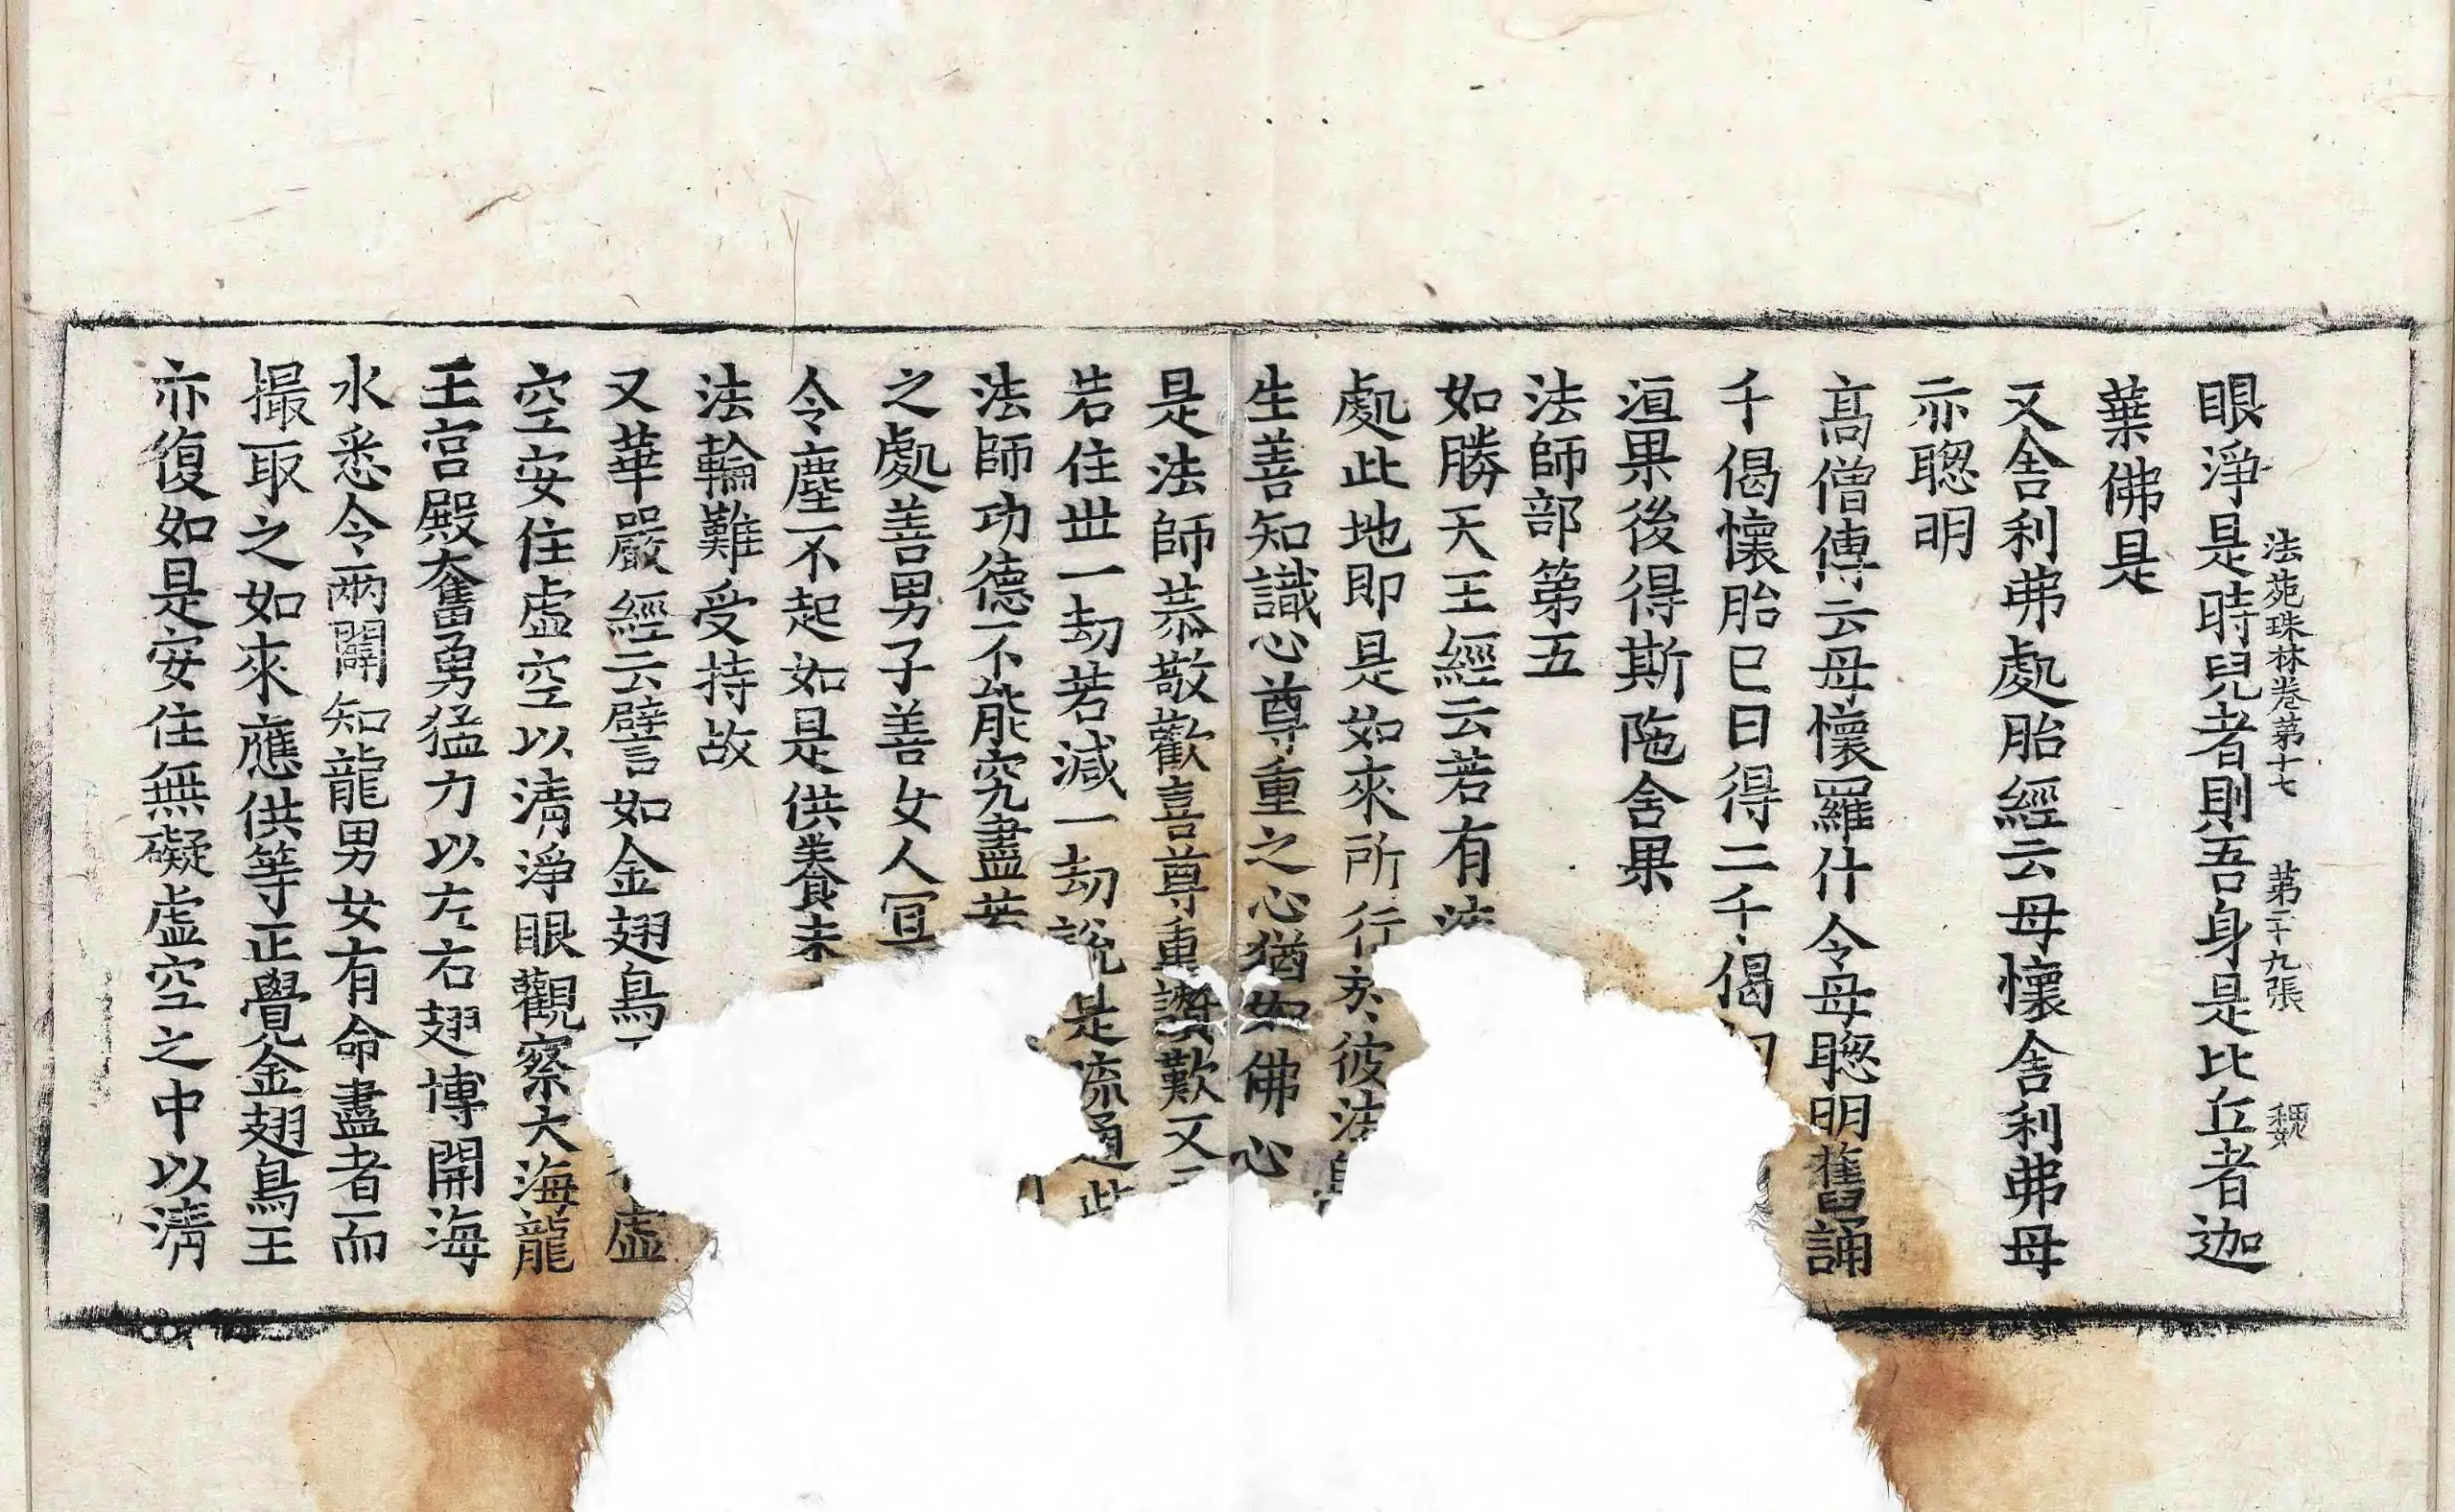 眼淨是時兒者則吾身是比丘者迦
法苑珠林卷第十七 第二十九張
葉佛是
又舍利弗處胎經云母懷舍利弗母
亦聦明
髙僧傳云母懷羅什令母聦明舊誦
千偈懷胎已日得二千偈
洹果後得斯陁舍果
法師部第五
如勝天王經云若有法
處此地即是如來所行於彼法
生善知識心尊重之心猶如佛心
是法師恭敬歡喜尊重讚歎又
若住世一劫若減一劫說是流通此
法師功德不能究盡若
之處善男子善女人冝
令塵不起如是供養未
法輪難受持故
又華嚴經云譬如金翅鳥 虛
空安住虛空以清淨眼觀察大海龍
王宮殿奮勇猛力以左右翅博開海
水悉令兩闢知龍男女有命盡者而
撮取之如來應供等正覺金翅鳥王
亦復如是安住無礙虛空之中以清